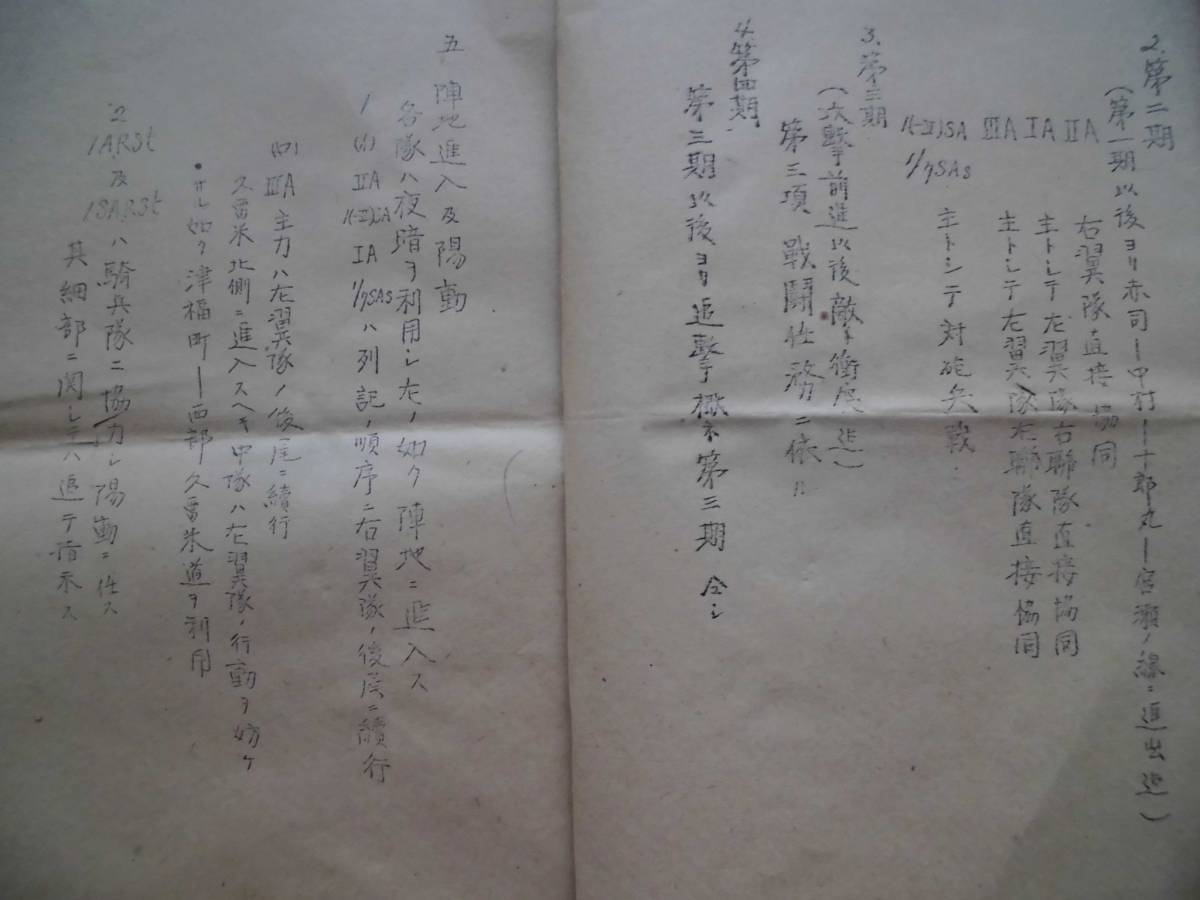 2. 第二期
(第一期以後ヨリ赤司ー中村ー十郎丸ー宮瀬ノ線ニ進出迄)
ⅡA 右翼隊直接協同
ⅠA 主トシテ左翼隊右聯隊直接協同
ⅢA 主トシテ左翼隊左聯隊直接協同
主トシテ対砲兵戦
1/7SAs
3. 第三期
(攻撃前進以後敵ト衝突迄)
第三項 戦闘任務ニ依ル
4. 第四期
第三期以後ヨリ追撃 概ネ第三期 仝シ
五 陣地進入及陽動
各隊ハ夜暗ヲ利用シ左ノ如ク陣地ニ進入ス
1 (イ) ⅡA ⅠA 1/7SAsハ列記ノ順序ニ右翼隊ノ後尾ニ續行
(ロ) ⅢA 主力ハ左翼隊ノ後尾ニ續行
久留米北側ニ進入スヘキ中隊ハ左翼隊ノ行動ヲ妨ケ
サル如ク津福町ー西部久留米道ヲ利用
2 1ARSt及1SARStハ騎兵隊ニ協力シ陽動ニ任ス
其細部ニ関シテハ追テ指示ス